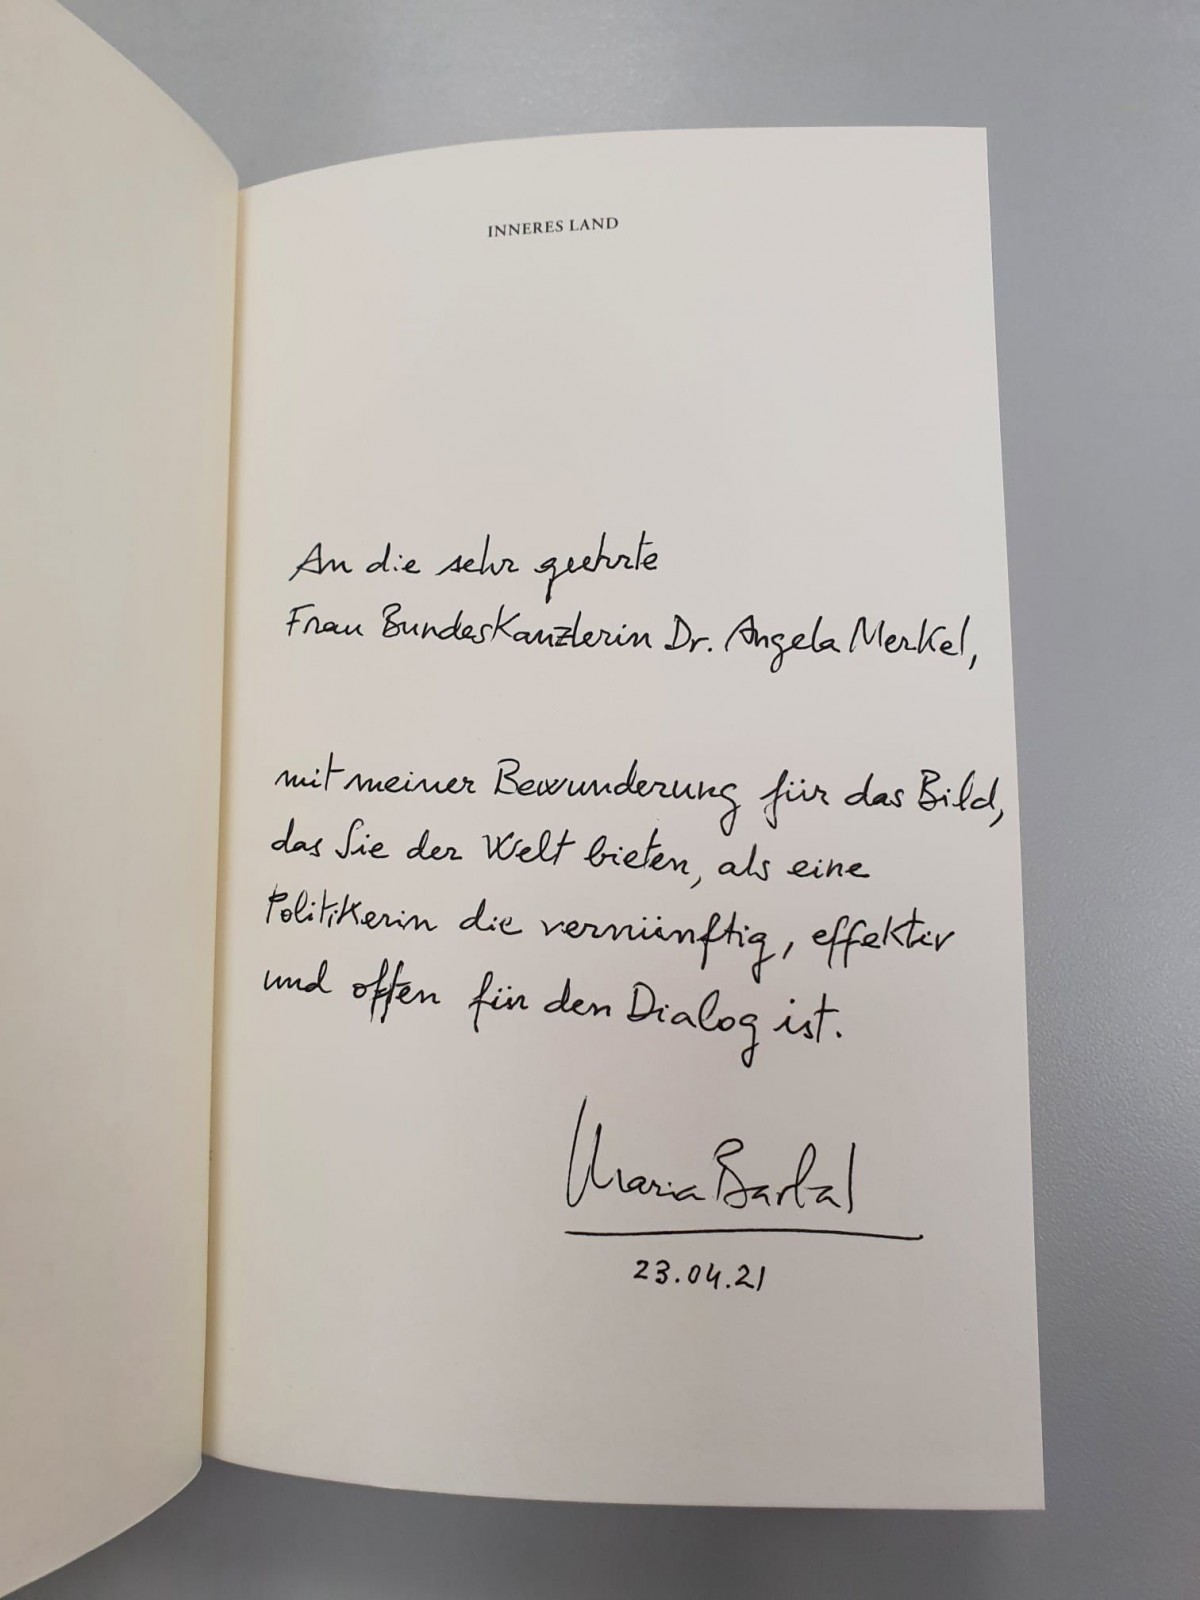 INNERES LAND
An die sehr geehrte
Frau Bundeskanzlerin Dr. Angela Merkel,
mit meiner Bewunderung für das Bild,
das Sie der Welt bieten, als eine
Politikerin die vernünftig, effektiv
und offen für den Dialog ist.
Maria Barbal
23.04.21